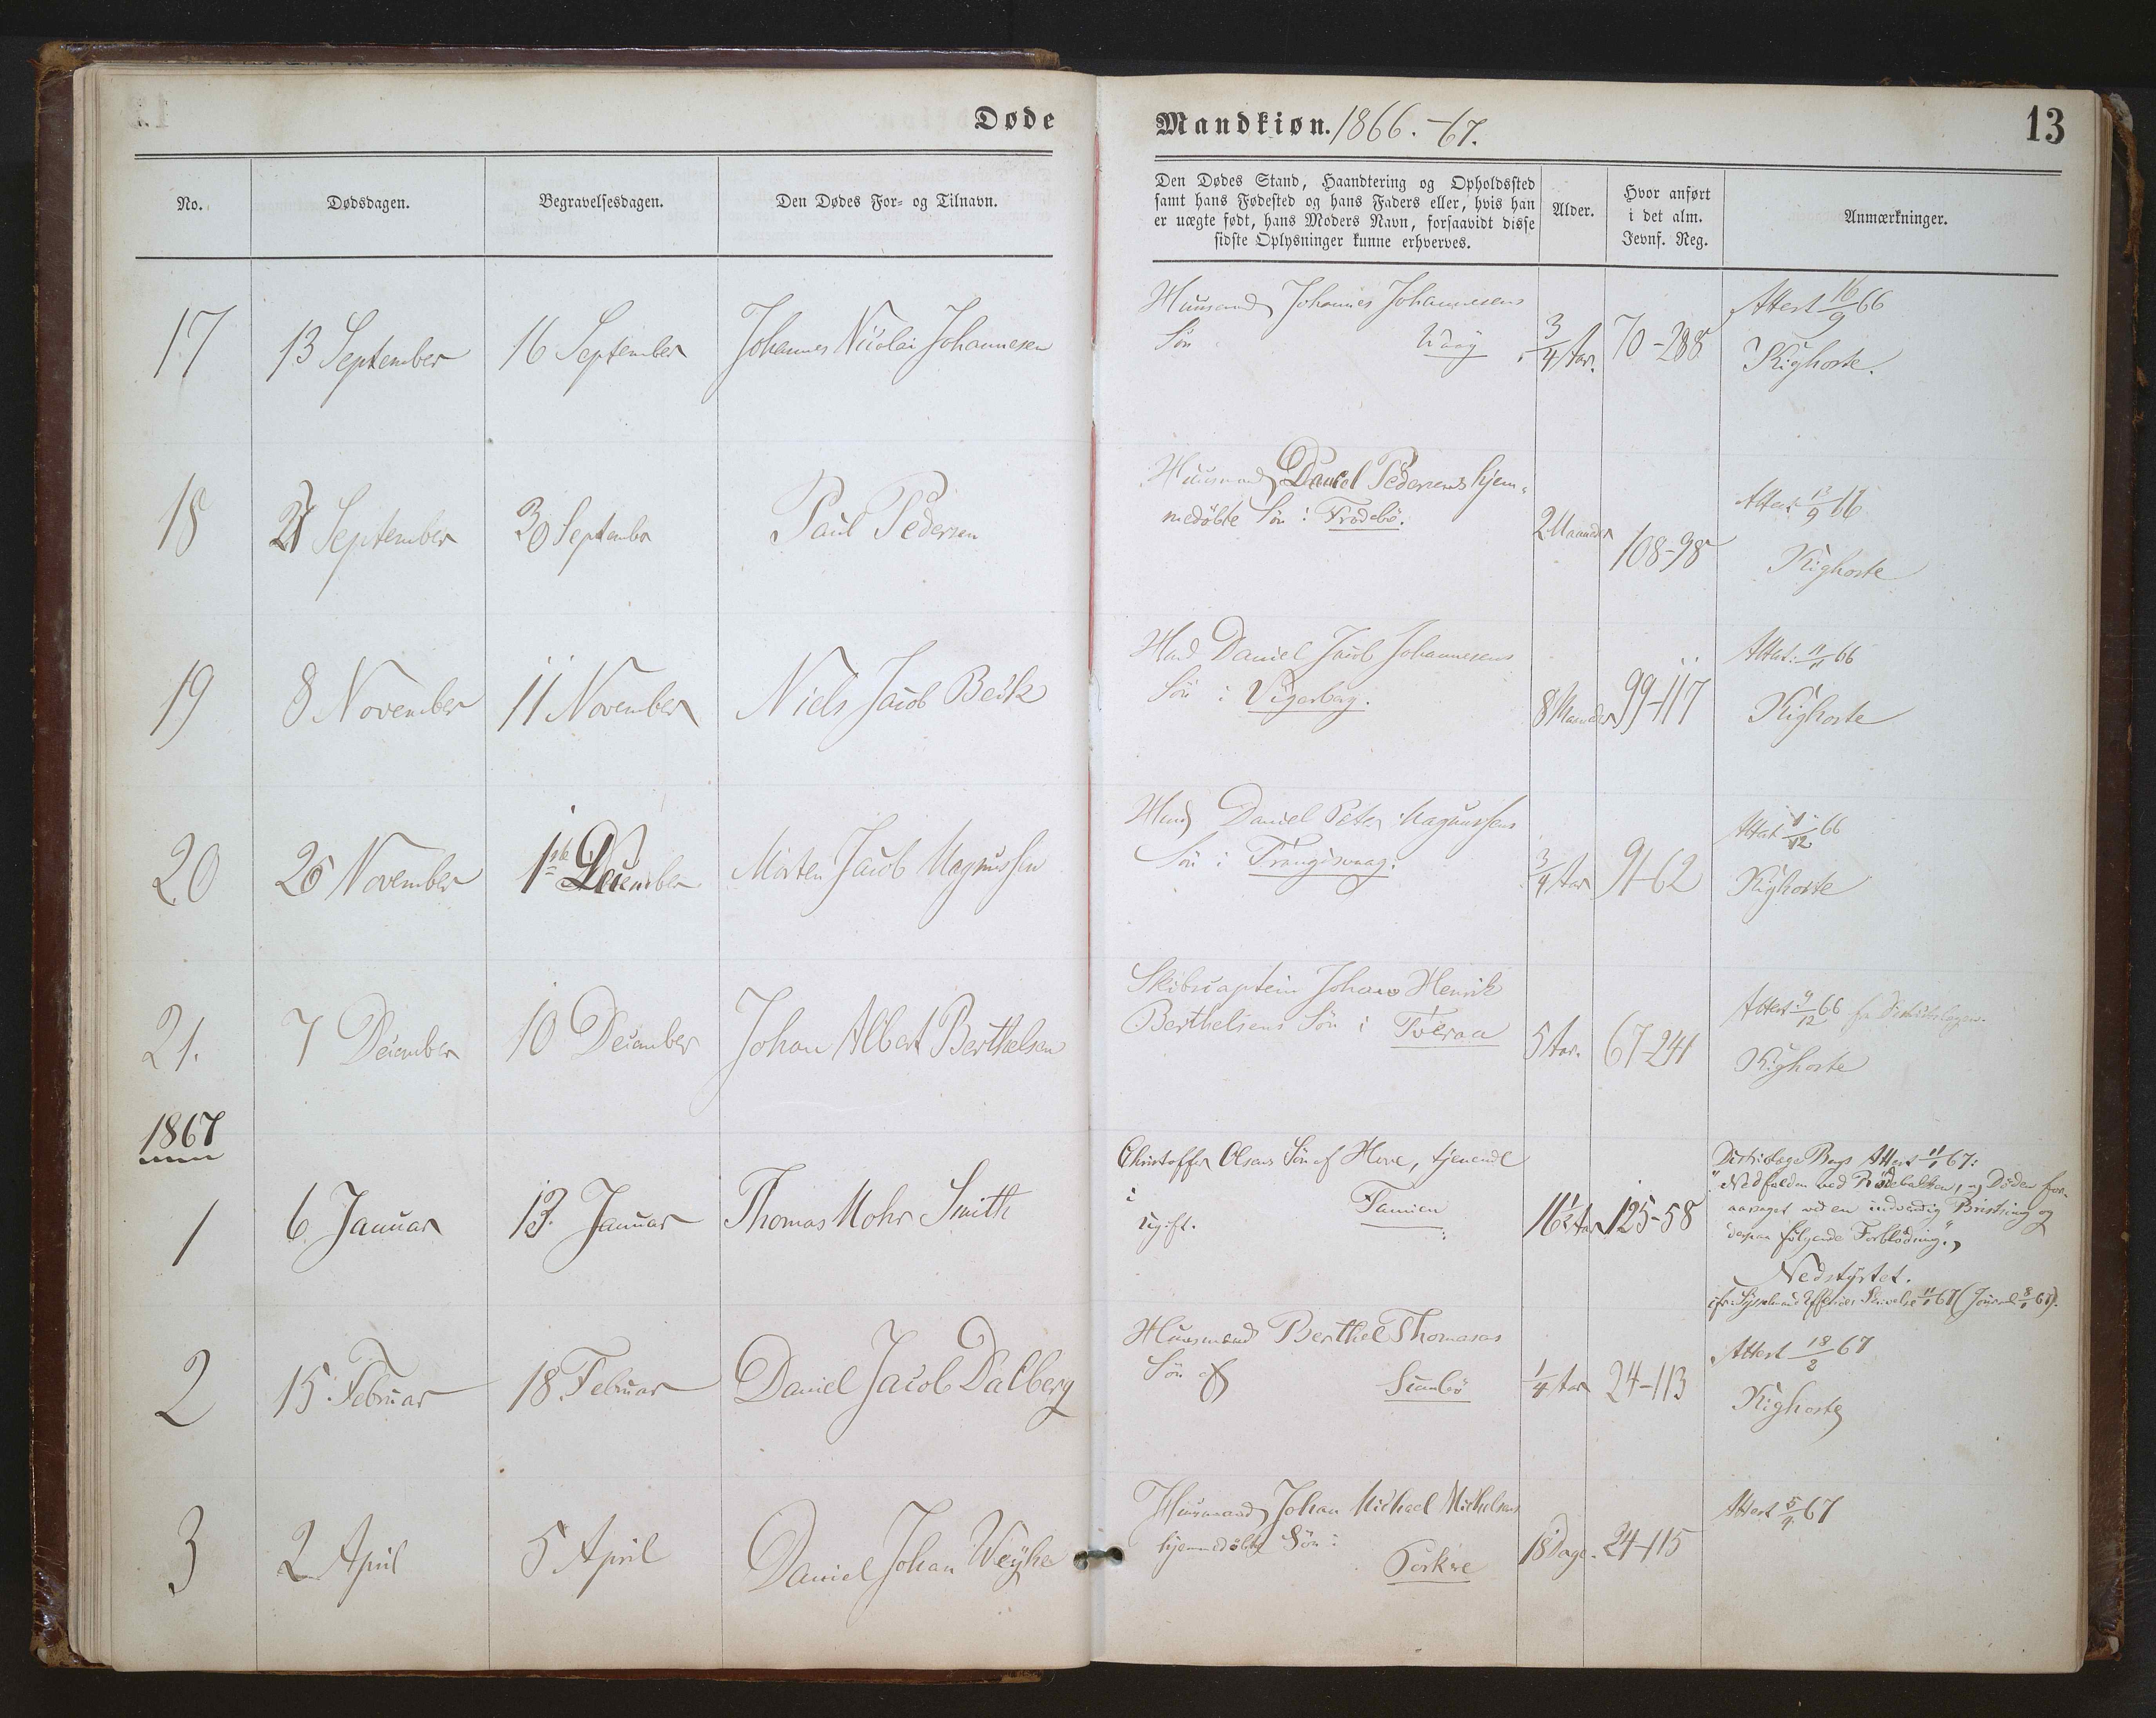 Døde
Mandkiøn. 1866.-67.
13
No.
Dødsdagen.
Begravelsesdagen.
Den Dødes For- og Tilnavn.
Den Dødes Stand, Haandtering og Opholdssted
samt hans Fødested og hans Faders eller, hvis han
er uægte født, hans Moders Navn, forsaavidt disse
sidste Oplysninger kunne erhverves.
Alder.
Hvor anført
i det alm.
Jevnf. Reg.
Anmærkninger.
17
13 September
16 September
Johannes Nicolai Johannesen
Huusmand Johannes Johannesens
Søn
Waag
3/4 Aar.
70-288
Attest 16/9 66
Kighoste.
18
September
30 September
Paul Pedersen
Huusmand Daniel Pedersens hjem-
medøbte Søn i Frodebø.
2 Maaneder
108-98
Attest 66
Kighoste
19
8 November
11 November
Niels Jacob Beck
Daniel Jacob Johannesens
Søn i Vigerberg.
8 Maaneder
99-117
Attest: 11/11 66
Kighoste
20
25 November
1ste December
Morten Jacob Magnussen
Daniel Peter Magnussens
Søn i Frangisvaag.
3/4 Aar
91-62
Attest 1/12 66
Kighoste
21.
7 December
10 December
Johan Albert Berthelsen
Skibscaptein Johan Henrik
Berthelsens Søn i Tveraa
5 Aar.
67-241
Attest 9/12 66 fra Districtslægen.
Kighoste
1867
1
6 Januar
13. Januar
Thomas Mohr Smith
Christoffer Olsens Søn af Hove, tjenende
i Famien
ugift.
16½ Aar
125-58
Attest 11/1 67:
"Nedfalden ved og Døden for-
aarsaget ved en indvendig Bristning og
derpaa følgende Forblødning."
Nedstyrtet.
2
15. Februar
18. Februar
Daniel Jacob Dalberg
Huusmand Berthel Thomasens
Søn af Sumbø
1/4 Aar
24-113
Attest 18/2 67
Kighoste
3
2 April
5 April
Daniel Johan Weyhe
Huusmand Johan Michael Michelsens
hjemmedøbte Søn i
Porkere
18 Dage.
24-115
Attest 5/4 67